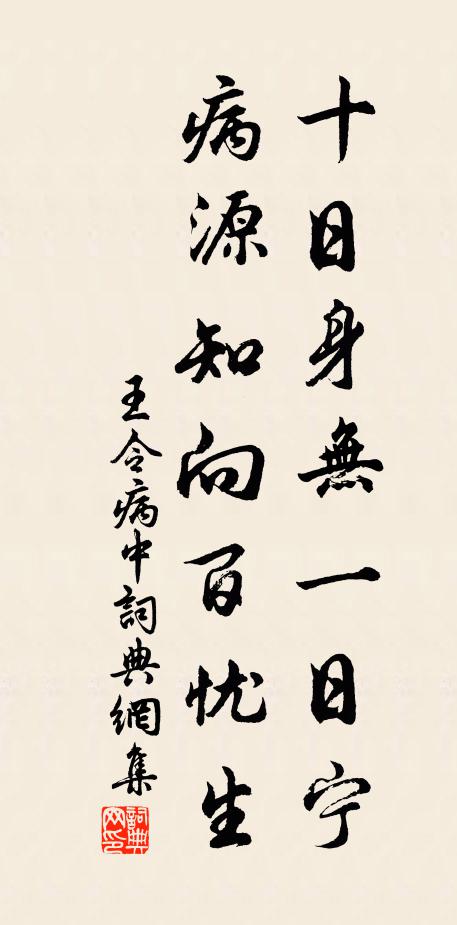 十日身無一日宁
病源知向百忧生
王令病中詞典網集
詞典
网印